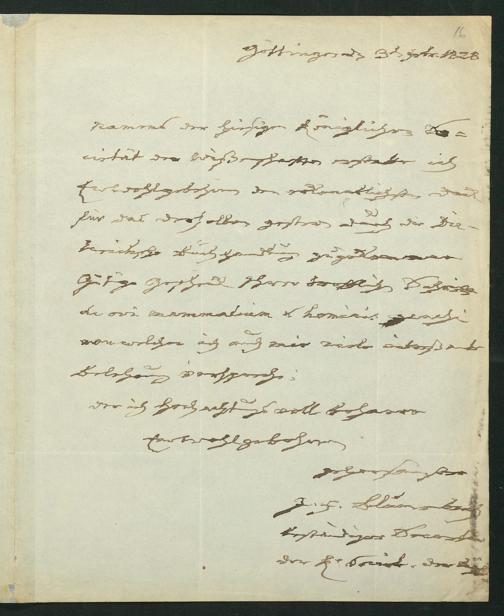 16
Göttingen den 3t 9br. 1828
Namens der hiesigen Königlichen So=
cietät der Wissenschaften erstatte ich
Ew Wohlgebohren den verbindlichsten Dank
für das derselben gestern durch die Die-
terichsche Buchhandlung zugekommene
gütige Geschenk Ihrer trefflichen Schrift
de ovi mammalium & hominis genesi
von welcher ich auch mir viele interessante
Belehrung verspreche;
der ich hochachtungsvoll beharre
Ew Wohlgebohren
gehorsamster
J. F. Blumenbach
beständiger Secret
der K. Societ. der